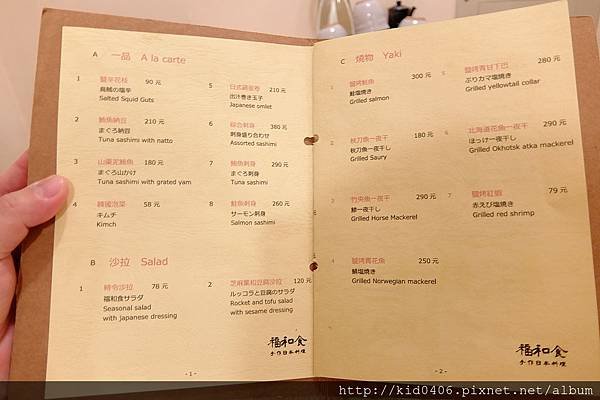 A 一品 A la carte
1 鹽辛花枝 90 元
烏賊の塩辛
Salted Squid Guts
2 鮪魚納豆 210 元
まぐろ納豆
Tuna sashimi with natto
3 山藥泥鮪魚 180 元
まぐろ山かけ
Tuna sashimi with grated yam
4 韓國泡菜 58 元
キムチ
Kimch
5 日式雞蛋卷 210 元
出汁巻き玉子
Japanese omlet
6 綜合刺身 380 元
刺身盛り合わせ
Assorted sashimi
7 鮪魚刺身 290 元
まぐろ刺身
Tuna sashimi
8 鮭魚刺身 260 元
サーモン刺身
Salmon sashimi
B 沙拉 Salad
1 時令沙拉 78 元
福和食サラダ
Seasonal salad
with japanese dressing
2 芝麻葉和豆腐沙拉 120 元
ルッコラと豆腐のサラダ
Rocket and tofu salad
with sesame dressing
福和食
手作日本料理
- 1 -
C 燒物 Yaki
1 鹽烤鮭魚 300 元
鮭塩焼き
Grilled salmon
2 秋刀魚一夜干 180 元
秋刀魚一夜干し
Grilled Saury
3 竹夾魚一夜干 290 元
鯵一夜干し
Grilled Horse Mackerel
4 鹽烤青花魚 250 元
鯖塩焼き
Grilled Norwegian mackerel
5 鹽烤青甘下巴 280 元
ぶりカマ塩焼き
Grilled yellowtail collar
6 北海道花魚一夜干 290 元
ほっけ一夜干し
Grilled Okhotsk atka mackerel
7 鹽烤紅蝦 79 元
赤えび塩焼き
Grilled red shrimp
福和食
手作日本料理
- 2 -
http://kid0406.pixnet.net/album